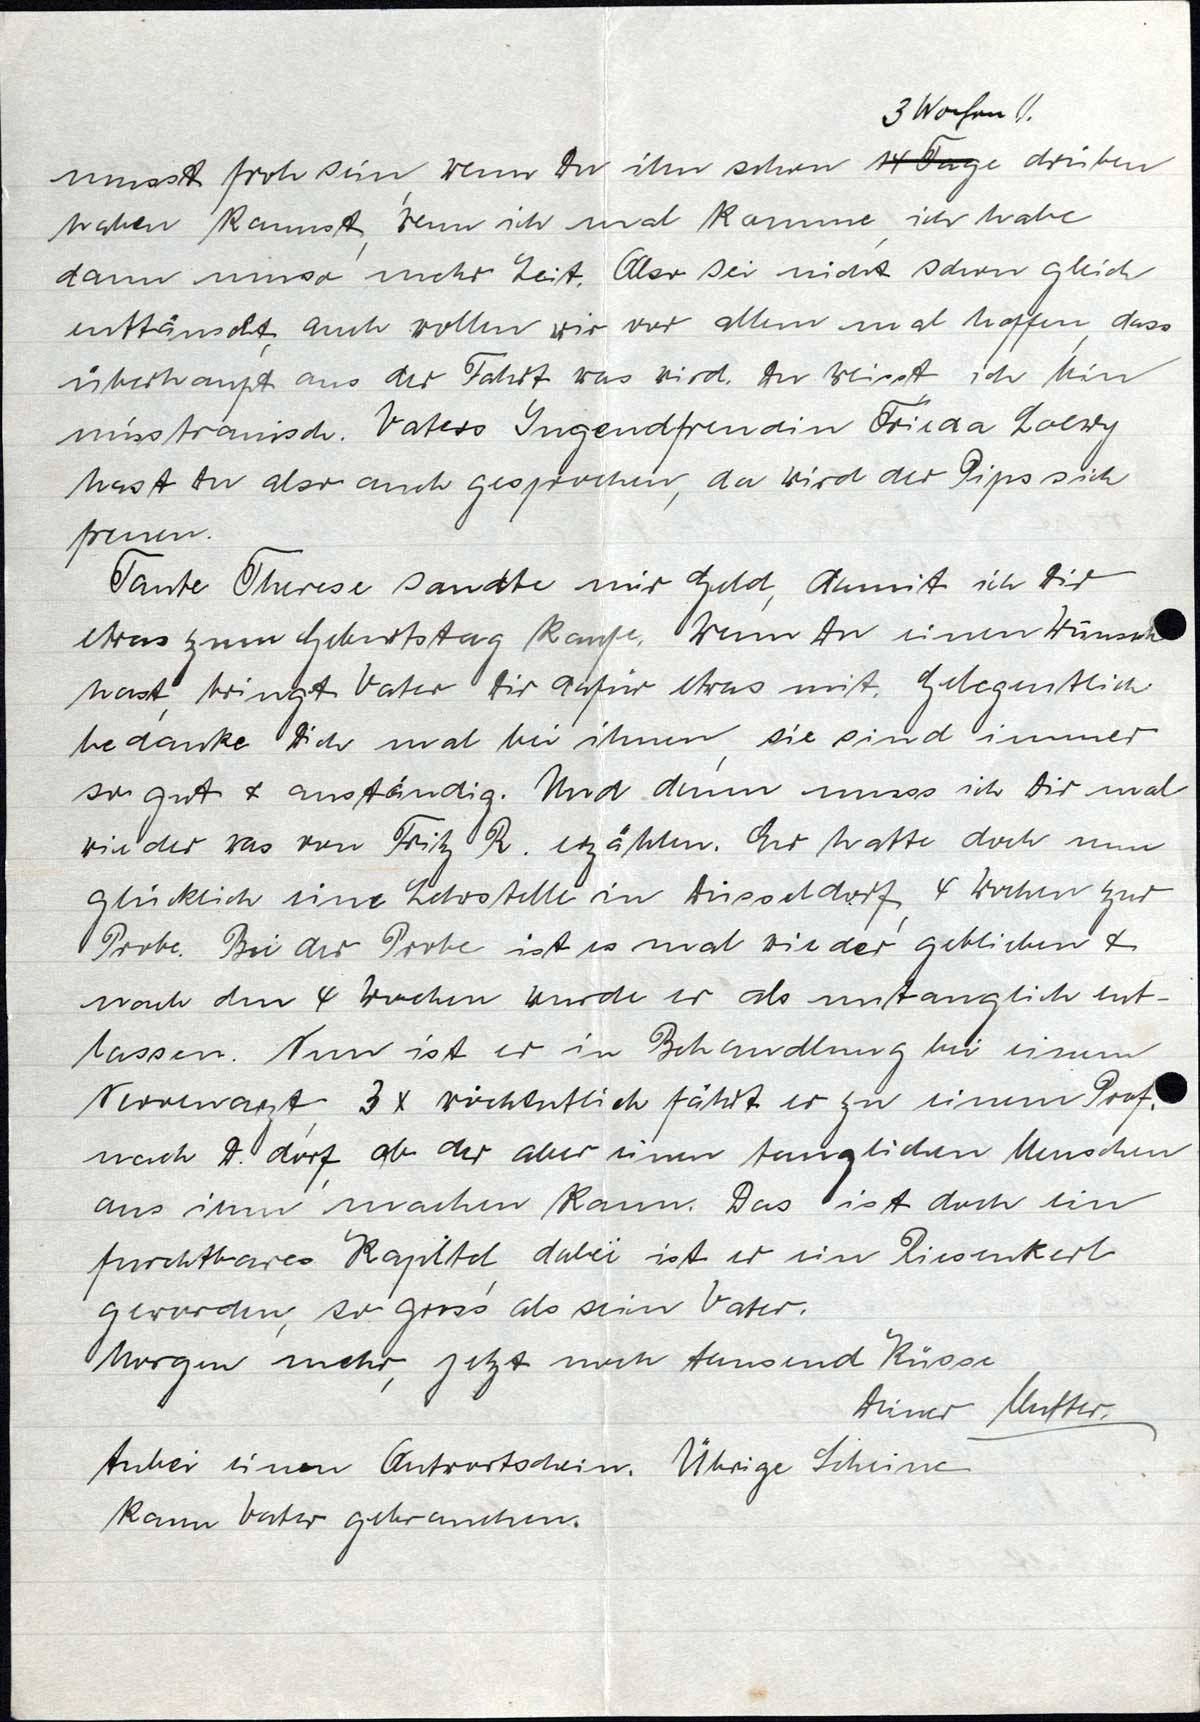 3 Wochen !!
musst froh sein, wenn Du ihn schon 14 Tage drüben
haben kannst, wenn ich mal komme, ich habe
dann umso mehr Zeit. Also sei nicht schon gleich
enttäuscht, auch wollen wir vor allem mal hoffen, dass
überhaupt aus der Fahrt was wird. Du weisst ich bin
misstrauisch. Vaters Jugendfreundin Frieda Loewy
hast Du also auch gesprochen, da wird der Pips sich
freuen.
Tante Therese sandte mir Geld, damit ich Dir
etwas zum Geburtstag kaufe. Wenn Du einen Wunsch
hast, bringt Vater Dir dafür etwas mit. Gelegentlich
bedanke Dich mal bei ihnen, sie sind immer
so gut & anständig. Und dann muss ich Dir mal
wieder was von Fritz R. erzählen. Er hatte doch nun
glücklich eine Lehrstelle in Düsseldorf, 4 Wochen zur
Probe. Bei der Probe ist es mal wieder geblieben &
nach den 4 Wochen wurde er als untauglich ent-
lassen. Nun ist er in Behandlung bei einem
Nervenarzt, 3 x wöchentlich fährt er zu einem Prof.
nach D.dorf, ob der aber einen tauglichen Menschen
aus ihm machen kann. Das ist doch ein
furchtbares Kapitel, dabei ist er ein Riesenkerl
geworden, so gross als sein Vater.
Morgen mehr, jetzt noch tausend Küsse
Deiner Mutter.
Anbei einen Antwortschein. Übrige Scheine
kann Vater gebrauchen.